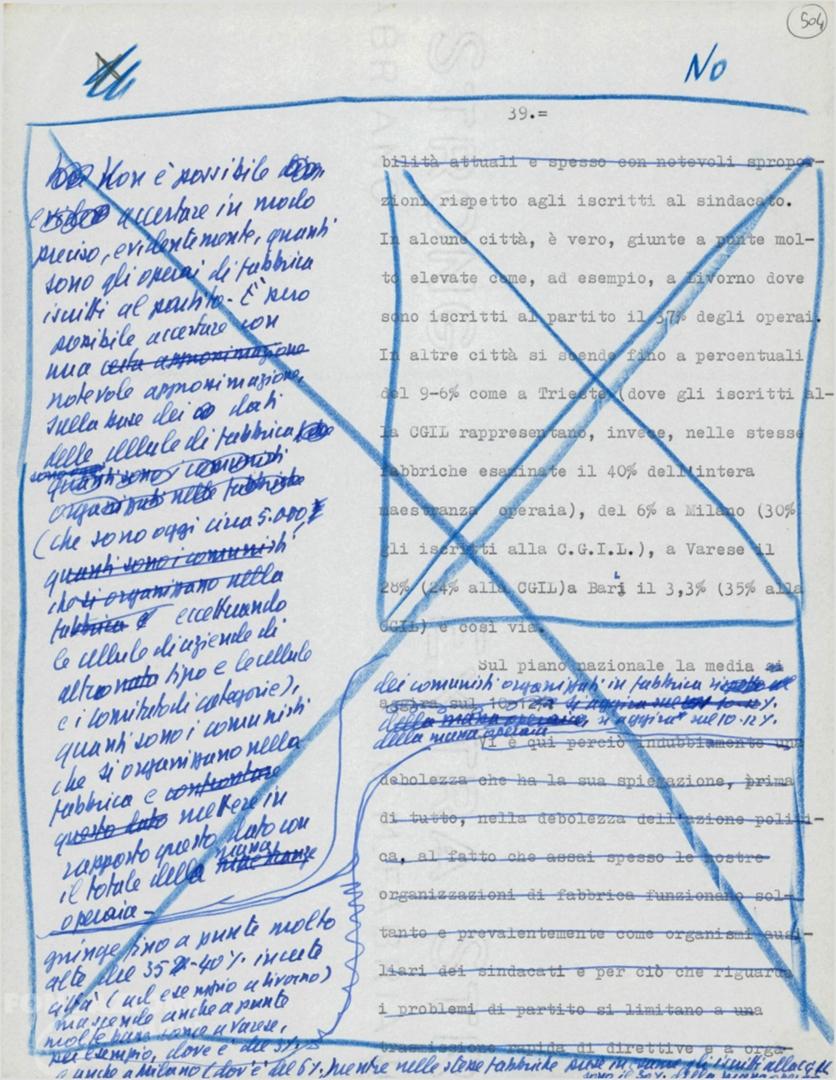 504
No
39.=
Non è possibile
accertare in modo
preciso, evidentemente, quanti
sono gli operai di fabbrica
iscritti al partito. È però
possibile accertare con
una certa approssimazione
notevole approssimazione,
sulla base dei dati
delle cellule di fabbrica
quanti sono i comunisti
organizzati nelle fabbriche
(che sono oggi circa 5.000
quanti sono i comunisti
che si organizzano nella
fabbrica eccettuando
le cellule di aziende di
altro tipo e le cellule
e i comitati di categorie),
quanti sono i comunisti
che si organizzano nella
fabbrica e confrontare
questo dato mettere in
rapporto questo dato con
il totale della massa
operaia -
giunge fino a punte molto
alte del 35-40% in certe
città (ad esempio a Livorno)
ma scende anche a punte
molto basse come a Varese,
per esempio, dove è del 3%
o anche a Milano (dov'è del 6%, mentre nelle stesse fabbriche gli iscritti alla CGIL
bilità attuali e spesso con notevoli spropor-
zioni rispetto agli iscritti al sindacato.
In alcune città, è vero, giunte a punte mol-
to elevate come, ad esempio, a Livorno dove
sono iscritti al partito il 37% degli operai.
In altre città si scende fino a percentuali
del 9-6% come a Trieste (dove gli iscritti al-
la CGIL rappresentano, invece, nelle stesse
fabbriche esaminate il 40% dell'intera
maestranza operaia), del 6% a Milano (30%
gli iscritti alla C.G.I.L.), a Varese il
28% (24% alla CGIL)a Bari il 3,3% (35% alla
CGIL) e così via.
Sul piano nazionale la media si
dei comunisti organizzati in fabbrica rispetto al
aggira sul 10-12% si aggira sul 10-12%.
della massa operaia, si aggira sul 10-12%.
della massa operaia
Vi è qui perciò indubbiamente una
debolezza che ha la sua spiegazione, prima
di tutto, nella debolezza dell'azione politi-
ca, al fatto che assai spesso le nostre
organizzazioni di fabbrica funzionano sol-
tanto e prevalentemente come organismi ausi-
liari dei sindacati e per ciò che riguarda
i problemi di partito si limitano a una
trasmissione rapida di direttive e a orga-